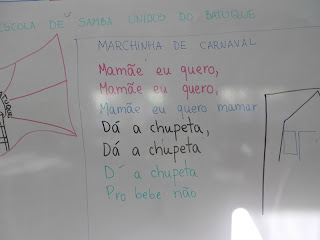 ESCOLA DE SAMBA UNIDOS DO BATUQUE
MARCHINHA DE CARNAVAL
Mamãe eu quero,
Mamãe eu quero,
Mamãe eu quero mamar
Dá a chupeta,
Dá a chupeta
D´ a chupeta
Pro bebe não